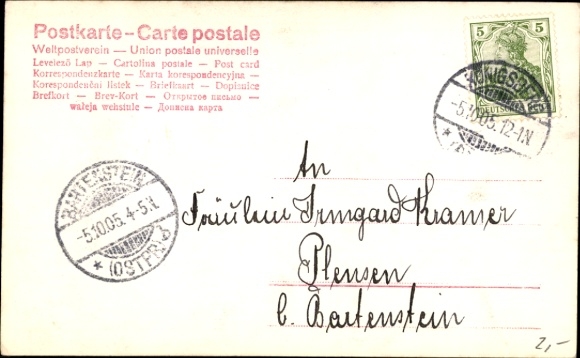 Postkarte – Carte postale
Weltpostverein — Union postale universelle
Levelező Lap — Cartolina postale — Post card
Korrespondenzkarte — Karta korespondencyjna —
Korespondenční lístek — Briefkaart — Dopisnice
Brefkort — Brev-Kort — Открытое письмо —
waleja wehstule — Дописна карта
5 5
KÖNIGSBERG
-5.10.05.12-1N.
BARTENSTEIN
-5.10.05.4-5N.
* (OSTPR.) b
An
Fräulein Irmgard Kramer
Plensen
b. Bartenstein
2,-